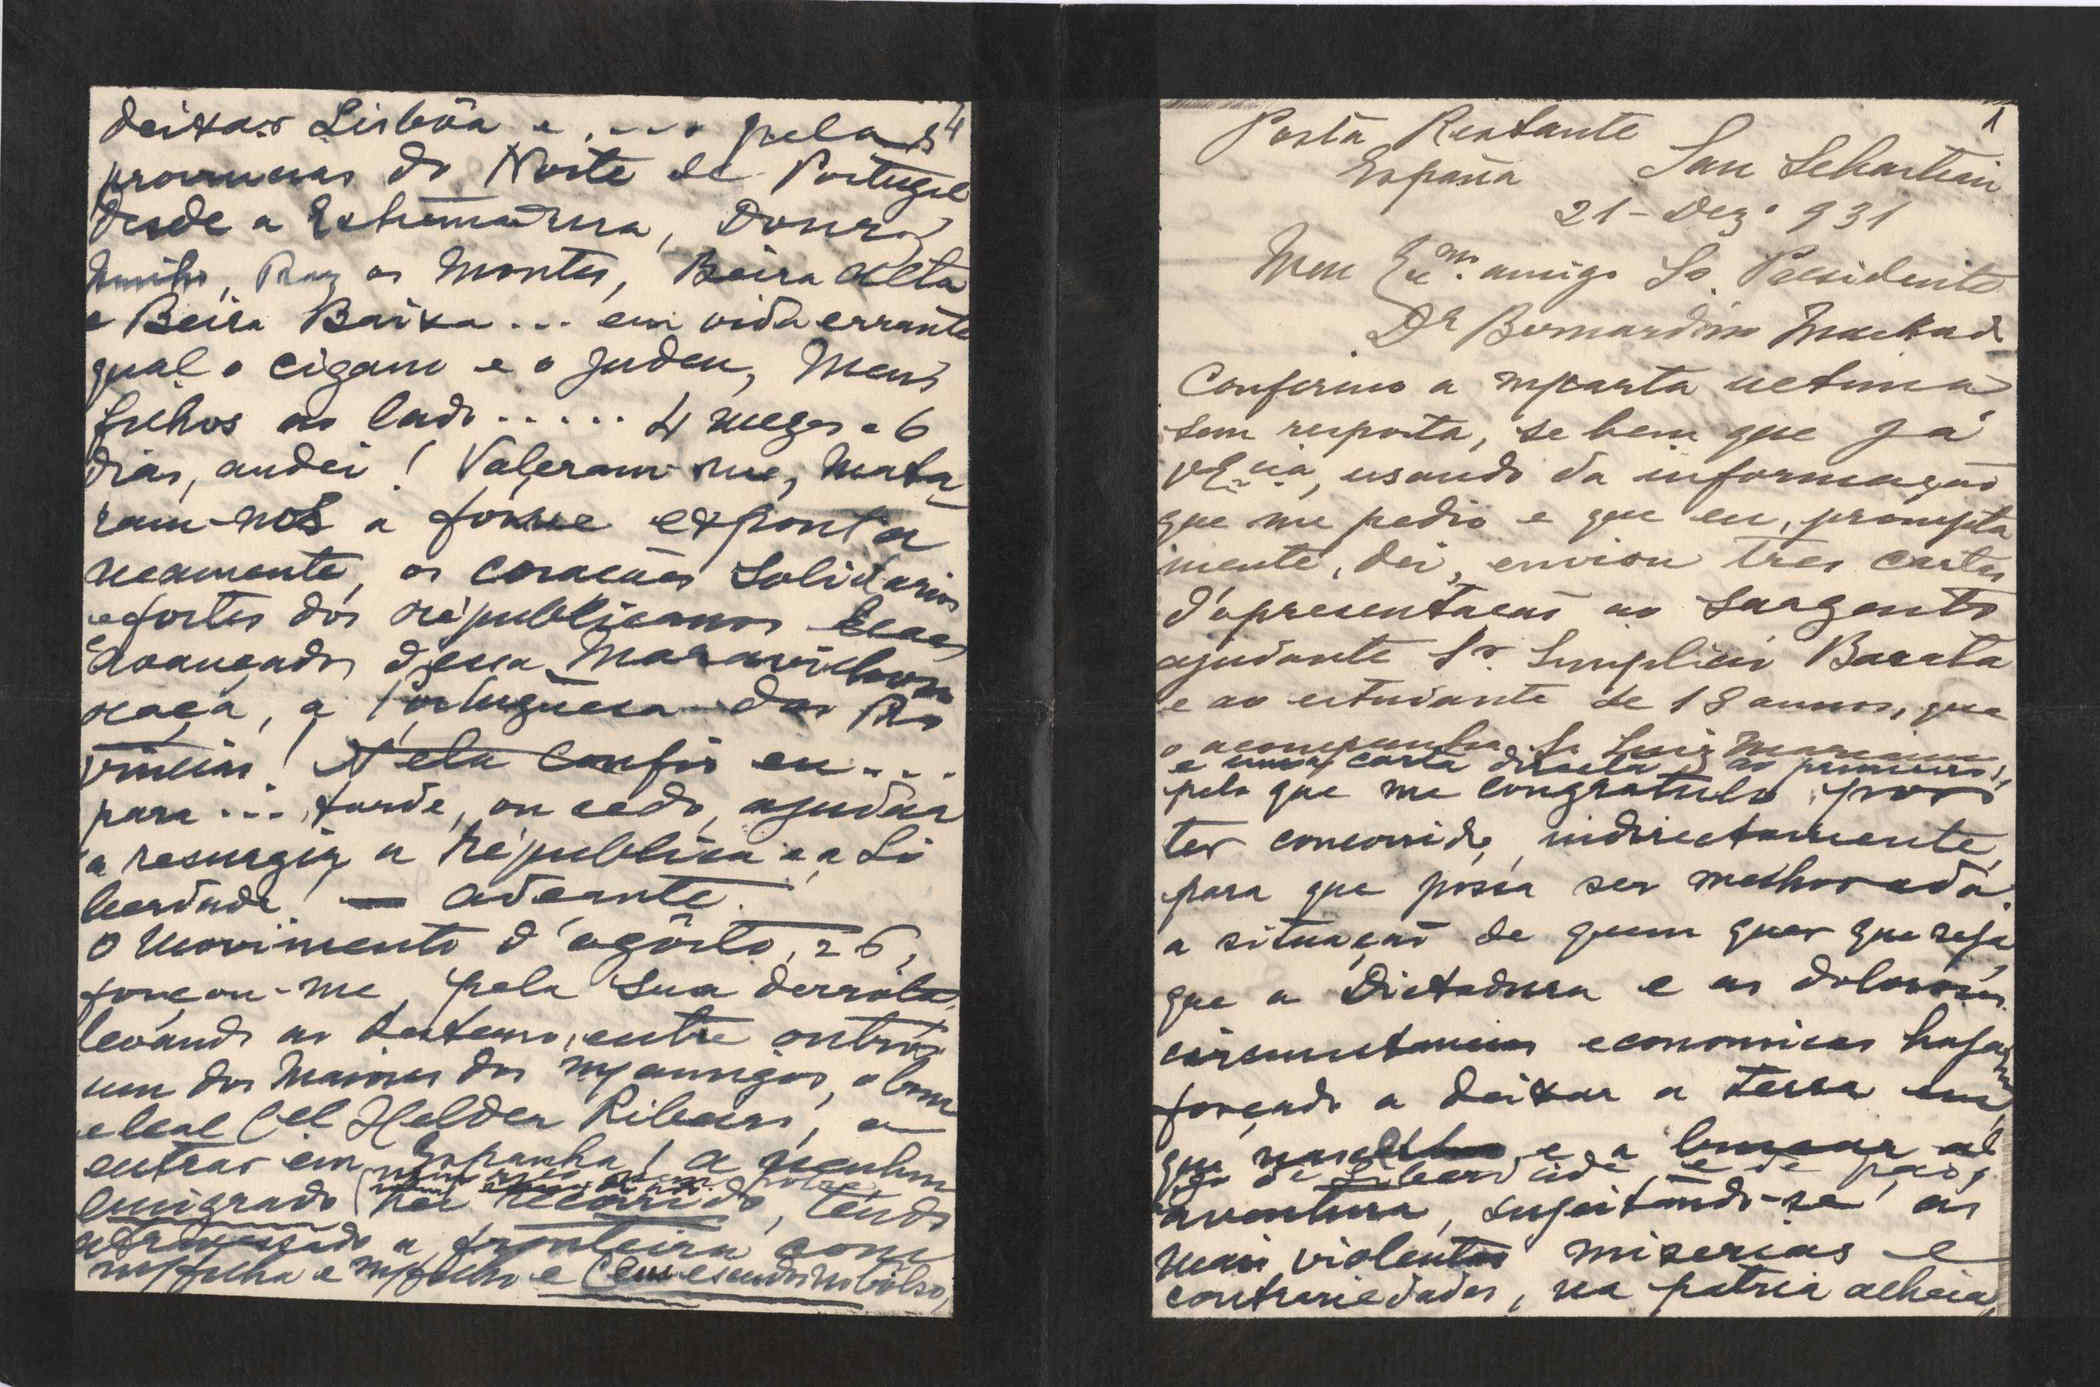 4
deixar Lisbôa e .... pelas
provincias do Norte de Portugal
desde a Estremadura, Douro,
Minho, Traz os Montes, Beira Alta
e Beira Baixa... em vida errante
qual o cigano e o Judeu, Meus
filhos ao lado..... 4 mezes e 6
dias, andei! Valeram-me, Mata-
ram-nos a fome expontа
neamente, os corações Solidarios
e fortes dos républicanos
avançados d'essa Maravilhosa
raça, a Portuguêsa das Pro
vincias! N'ela confio eu...
para... tarde, ou cedo, ajudar
a resurgir a Républica e a Li
berdade! — adeante.
O Movimento d'agôsto, 26,
forçou-me, pela sua derrota,
levando ao desterro, entre outros
um dos Maiores dos mṣ amigos, o bom
e leal Cel Helder Ribeiro, a
entrar em Espanha! A nenhum
emigrado hei recorrido, tendo
atravessado a fronteira com
mṣ filha e mṣ filho e Cem escudos no bolso,
1
Posta Restante
España San Sebastian
21-Dezº 931
Meu Exmº. amigo Sr. Presidente
Dr Bernardino Machado
Confirmo a mṣ carta ultima
sem resposta, se bem que já
V. Ex.cia, usando da informação
que me pedio e que eu, prompta
mente, dei, enviou tres cartas
d'apresentação ao Sargento
ajudante Sr. Simplicio Barata
e ao estudante de 18 annos, que
o acompanha Sr Luiz
e uma carta directa ao primeiro,
pelo que me congratulo por
ter concorrido, indirectamente,
para que possa ser melhorada
a situação de quem quer que seja,
que a Dictadura e as dolorosas
circumstancias economicas hajam
forçado a deixar a terra em
que nasceu e a buscar al
go de Liberdade e de pão,
aventura, sugeitando-se ás
mais violentas miserias e
contrariedades, na patria alheia,